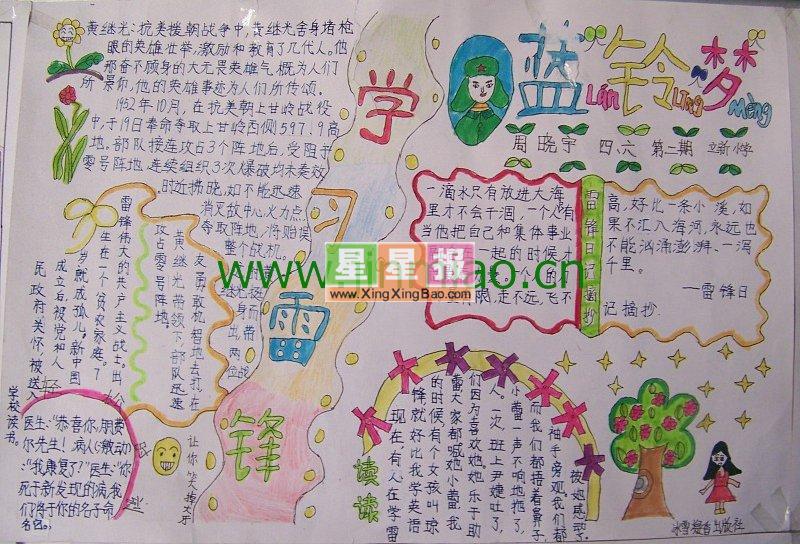 黄继光：抗美援朝战争中，黄继光舍身堵枪
眼的英雄壮举，激励和教育了几代人。他
那奋不顾身的大无畏英雄气概为人们
所景仰，他的英雄事迹为人们所传颂。
1952年10月，在抗美朝上甘岭战役
中，于19日奉命夺取上甘岭西侧597.9高
地。部队接连攻占3个阵地后，受阻于
零号阵地，连续组织3次爆破均未奏效
时近拂晓，如不能迅速
消灭敌中心火力点
夺取阵地，将贻误
整个战机。
学习雷锋
蓝铃梦
Lán Líng Mèng
周晓宇 四、六 第二期 立新小学
一滴水只有放进大海
里才不会干涸，一个人有
当他把自己和集体事业
一起的时候才
限，走不远，飞不
雷锋日记摘抄
高，好比一条小溪，如
果不汇入海河，永远也
不能汹涌澎湃、一泻
千里。
—雷锋日
记摘抄
www.
bao.cn
星星报
www.XingXingBao.com
雷锋伟大的共产主义战士。出
生在一个贫农家庭。7
岁就成孤儿。新中国
成立后，被党和人
民政府关怀，被送入
学校读书。
友勇敢机智地去打在
黄继光带领下部队迅速
攻占零号阵地。
医生："恭喜你，朋费
尔先生！病人（激动）
"我康复了？"医生："你
死于新发现的病，我
们将于你的名子命
名。
让你笑掉大牙
读读
现在，有人在学雷
锋就好比我学英语
的时候，有个女孩叫琼
雷大家都喊她小蕾，我
们因为喜欢她。她乐于助
人。一次，班上尹婕吐了，
小蕾一声不响地拖了，
而我们都捂着鼻子
袖手旁观。我们都
被她感动了。
冰雪凝香出版社